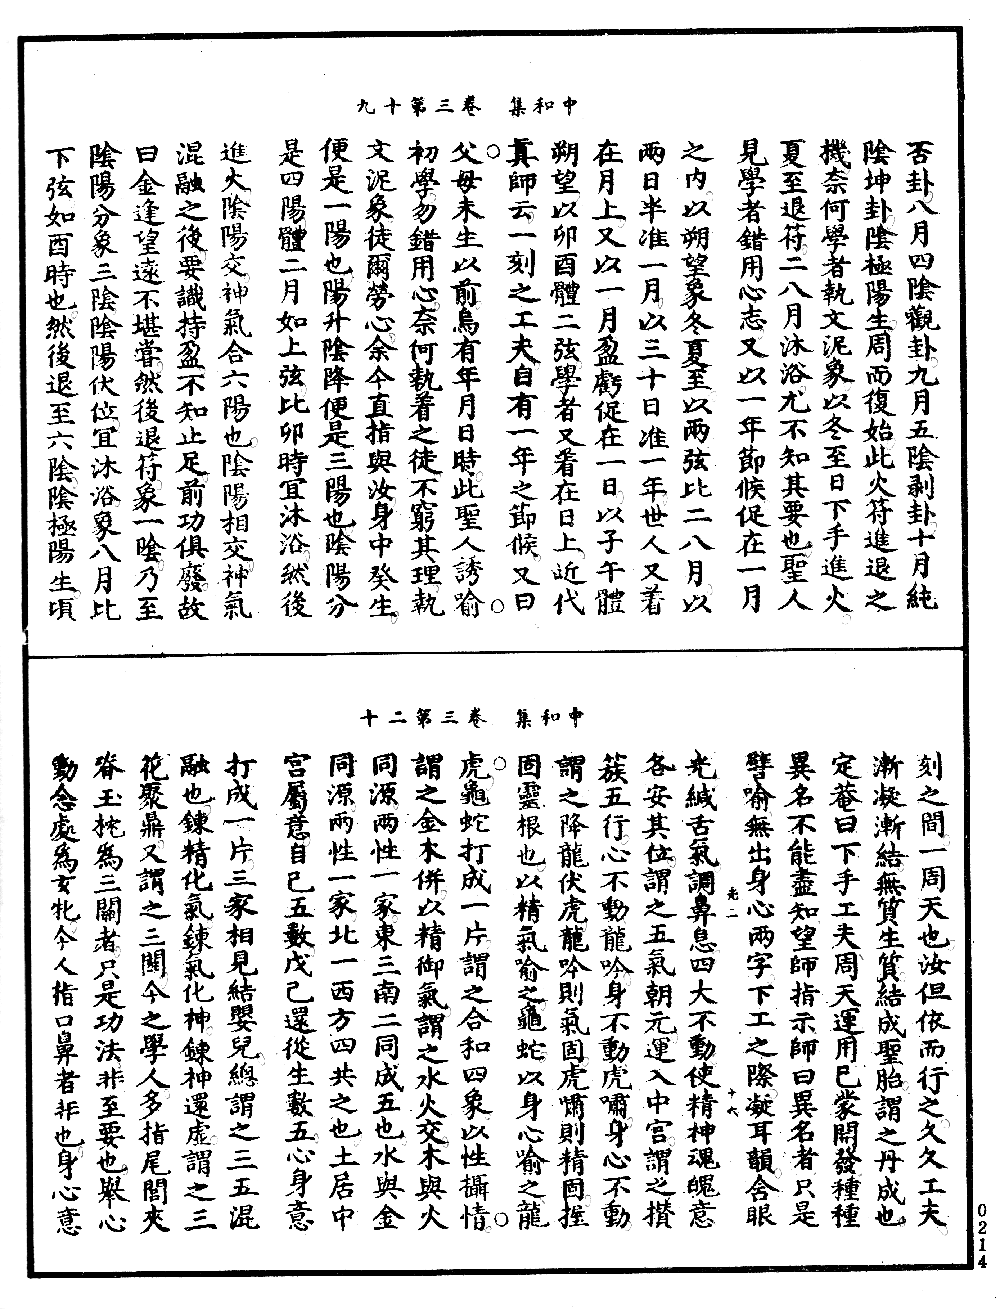 中和集　卷三第十九
否卦八月四陰觀卦九月五陰剥卦十月純
陰坤卦陰極陽生周而復始此火符進退之
機奈何學者執文泥象以冬至日下手進火
夏至退符二八月沐浴尤不知其要也聖人
見學者錯用心志又以一年節候促在一月
之内以朔望象冬夏至以兩弦比二八月以
兩日半准一月以三十日准一年世人又着
在月上又以一月盈虧促在一日以子午體
朔望以卯酉體二弦學者又着在日上近代
真師云一刻之工夫自有一年之節候又曰
父母未生以前烏有年月日時此聖人誘喻
初學勿錯用心奈何執着之徒不窮其理執
文泥象徒爾勞心余今直指與汝身中癸生
便是一陽也陽升陰降便是三陽也陰陽分
是四陽體二月如上弦比卯時宜沐浴然後
進火陰陽交神氣合六陽也陰陽相交神氣
混融之後要識持盈不知止足前功俱廢故
曰金逢望遠不堪嘗然後退符象一陰乃至
陰陽分象三陰陰陽伏位宜沐浴象八月比
下弦如酉時也然後退至六陰陰極陽生頃
中和集　卷三第二十
刻之間一周天也汝但依而行之久久工夫
漸凝漸結無質生質結成聖胎謂之丹成也
定菴曰下手工夫周天運用已蒙開發種種
異名不能盡知望師指示師曰異名者只是
譬喻無出身心兩字下工之際凝耳韻含眼
光緘舌氣調鼻息四大不動使精神魂魄意
各安其位謂之五氣朝元運入中宮謂之攢
簇五行心不動龍吟身不動虎嘯身心不動
謂之降龍伏虎龍吟則氣固虎嘯則精固握
固靈根也以精氣喻之龜蛇以身心喻之龍
虎龜蛇打成一片謂之合和四象以性攝情
謂之金木併以精御氣謂之水火交木與火
同源兩性一家東三南二同成五也水與金
同源兩性一家北一西方四共之也土居中
宮屬意自己五數戊己還從生數五心身意
打成一片三家相見結嬰兒總謂之三五混
融也鍊精化氣鍊氣化神鍊神還虚謂之三
花聚鼎又謂之三關今之學人多指尾閭夾
脊玉枕爲三關者只是功法非至要也舉心
動念處爲玄牝今人指口鼻者非也身心意
光二
十六
0214